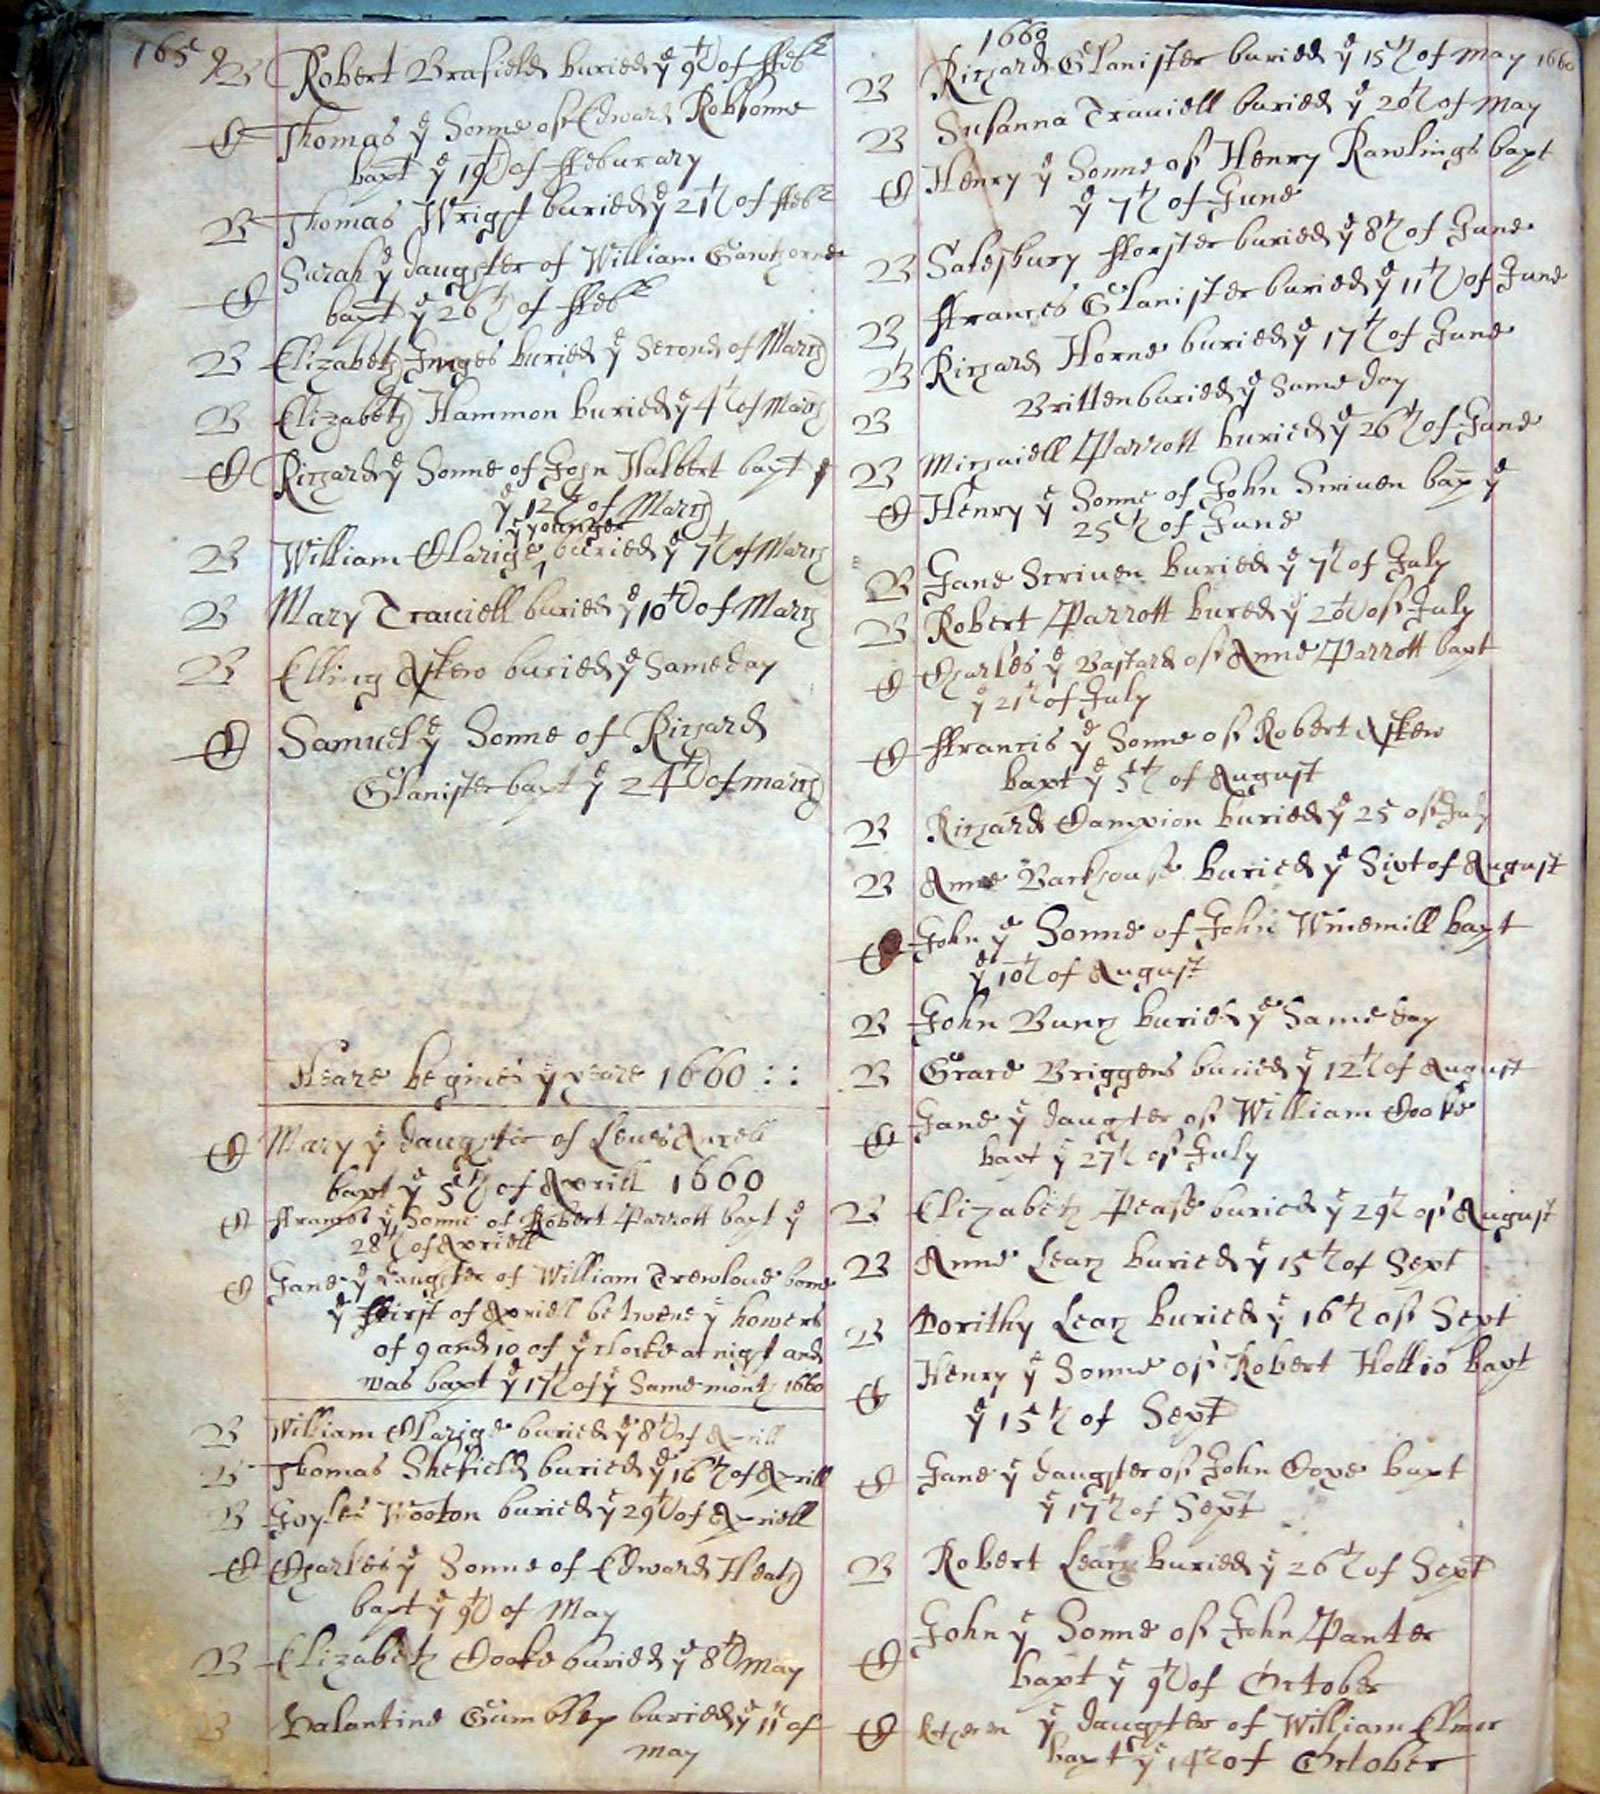 165
B Robert Brafield buried ye 9th of ffebr
C Thomas ye Sonne of Edward Robsonne
bapt ye 19th of ffeburary
B Thomas Wright buried ye 21th of ffebr
Sarah ye daughter of William Gawthorne
C bapt ye 26th of ffebr
B Elizabeth buried ye Second of March
B Elizabeth Hammon buried ye 4th of March
C Richard ye Sonne of John Halbert bapt
ye 12th of March
ye younger
B William Claridge buried ye 7th of March
B Mary Traviell buried ye 10th of March
B Elling Askew buried ye Same day
C Samuel ye Sonne of Richard
Glanister bapt ye 24th of march
Heare begines ye yeare 1660 : :
C Mary ye daughter of Lewes
bapt ye 5th of Aprill 1660
C ffrancis ye Sonne of Robert Parrott bapt ye
28th of Apriell
C Jane ye daughter of William Trewloue borne
ye ffirst of Apriell betwene ye howers
of 9 and 10 of ye clocke at night and
was bapt ye 17th of ye Same month 1660
B William Claridge buried ye 8th of Aprill
B Thomas Shefield buried ye 16th of Aprill
B Joyles Wooton buried ye 29th of Apriell
C Charles ye Sonne of Edward Heath
bapt ye 9th of May
B Elizabeth Cooke buried ye 8th May
B Valantine Gumbley buried ye 11 of
may
1660
B Richard Glanister buried ye 15th of May 1660
B Susanna Traviell buried ye 20th of May
C Henry ye Sonne of Henry Rawlings bapt
ye 7th of June
B Salesbury fforster buried ye 8th of June
B ffrances Glanister buried ye 11th of June
B Richard Horne buried ye 17th of June
B Britten buried ye Same day
B Michaiell Parrott buried ye 26th of June
C Henry ye Sonne of John Scriuen bap ye
25th of June
B Jane Scriuen buried ye 7th of July
B Robert Parrott bured ye 20th of July
C Charles ye Bastard of Anne Parrott bapt
ye 21th of July
C ffrancis ye Sonne of Robert Askew
bapt ye 5th of August
B Richard Campion buried ye 25 of July
B Anne Backhouse buried ye Sixt of August
C John ye Sonne of John Winemill bapt
ye 10th of August
B John Bunch buried ye Same day
B Grace Briggens buried ye 12th of August
C Jane ye daugter of William Cooke
bapt ye 27th of July
B Elizabeth Pease buried ye 29th of August
B Anne Leach buried ye 15th of Sept
B Dorithy Leach buried ye 16th of Sept
C Henry ye Sonne of Robert Hollis bapt
ye 15th of Sept
C Jane ye daughter of John Cope bapt
ye 17th of Sept
B Robert Leach buried ye 26th of Sept
C John ye Sonne of John Panter
bapt ye 9th of October
C Kathern ye daughter of William Elmer
bapt ye 14th of October